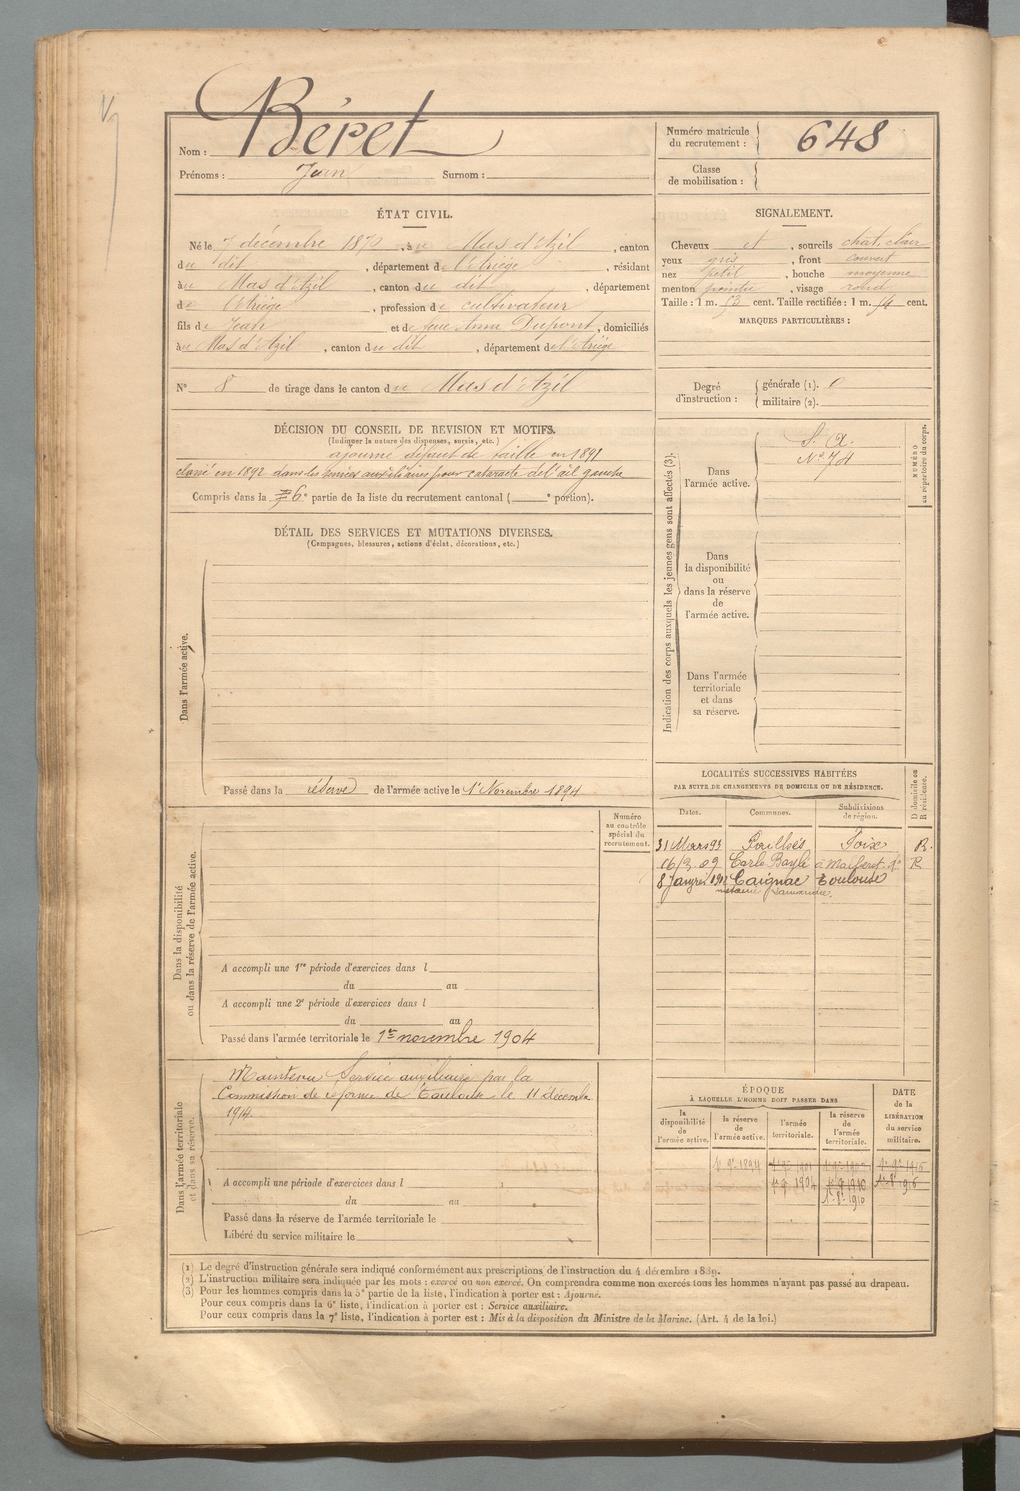 Béret
Nom :
Prénoms : Jean Surnom :
Numéro matricule
du recrutement : 648
Classe
de mobilisation :
ÉTAT CIVIL.
Né le 7 décembre 1870, à Mas d'Azil, canton
du dit, département de l'Ariège, résidant
au Mas d'Azil, canton du dit, département
de l'Ariège, profession de cultivateur
fils de Jean et de feue Anna Dupont, domiciliés
au Mas d'Azil, canton du dit, département de l'Ariège
N° 8 de tirage dans le canton du Mas d'Azil
SIGNALEMENT.
Cheveux et, sourcils chat. clair
yeux gris, front couvert
nez petit, bouche moyenne
menton pointu, visage rond
Taille : 1 m. 53 cent. Taille rectifiée : 1 m. 54 cent.
MARQUES PARTICULIÈRES :
Degré
d'instruction :
générale (1). 0
militaire (2).
DÉCISION DU CONSEIL DE REVISION ET MOTIFS.
(Indiquer la nature des dispenses, sursis, etc.)
ajourné défaut de taille en 1891
classé en 1892 dans les services auxiliaires pour cataracte de l'œil gauche
Compris dans la 6e partie de la liste du recrutement cantonal ( e portion).
DÉTAIL DES SERVICES ET MUTATIONS DIVERSES.
(Campagnes, blessures, actions d'éclat, décorations, etc.)
Dans l'armée active.
Passé dans la réserve de l'armée active le 1er Novembre 1894
Indication des corps auxquels les jeunes gens sont affectés (3).
Dans
l'armée active.
S. A.
N° 74
Dans
la disponibilité
ou
dans la réserve
de
l'armée active.
Dans l'armée
territoriale
et dans
sa réserve.
NUMÉRO
au répertoire du corps.
LOCALITÉS SUCCESSIVES HABITÉES
PAR SUITE DE CHANGEMENTS DE DOMICILE OU DE RÉSIDENCE.
Dates. Communes. Subdivisions
de région.
D domicile ou
R résidence.
31 Mars 93 Foix R.
16/3.09 Carla Bayle R
8 Janvier 1912 Caignac Toulouse
Dans la disponibilité
ou dans la réserve de l'armée active.
Numéro
au contrôle
spécial du
recrutement.
A accompli une 1re période d'exercices dans l
du au
A accompli une 2e période d'exercices dans l
du au
Passé dans l'armée territoriale le 1er novembre 1904
Dans l'armée territoriale
et dans sa réserve.
Maintenu Service auxiliaire par la
Commission de réforme de Toulouse le 11 décembre
1914.
A accompli une période d'exercices dans l
du au
Passé dans la réserve de l'armée territoriale le
Libéré du service militaire le
ÉPOQUE
À LAQUELLE L'HOMME DOIT PASSER DANS
la
disponibilité
de
l'armée active.
la réserve
de
l'armée active.
l'armée
territoriale.
la réserve
de
l'armée
territoriale.
DATE
de la
LIBÉRATION
du service
militaire.
1er 9bre 1894
1er 9 1904
1er 9 1910
1er 8bre 1910
1er 8 1916
(1) Le degré d'instruction générale sera indiqué conformément aux prescriptions de l'instruction du 4 décembre 1889.
(2) L'instruction militaire sera indiquée par les mots : exercé ou non exercé. On comprendra comme non exercés tous les hommes n'ayant pas passé au drapeau.
(3) Pour les hommes compris dans la 5e partie de la liste, l'indication à porter est : Ajourné.
Pour ceux compris dans la 6e liste, l'indication à porter est : Service auxiliaire.
Pour ceux compris dans la 7e liste, l'indication à porter est : Mis à la disposition du Ministre de la Marine. (Art. 4 de la loi.)